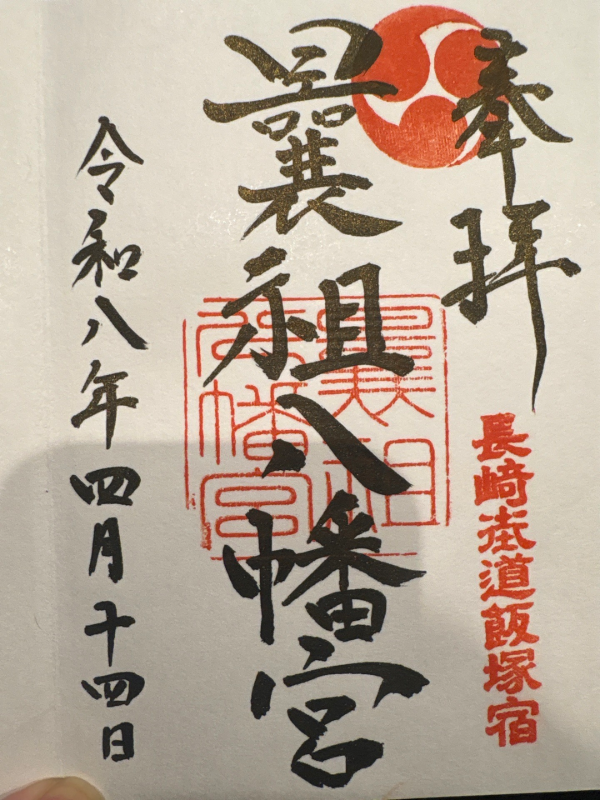 奉拝
長崎街道飯塚宿
曩祖八幡宮
曩祖
八幡宮
令和八年四月十四日